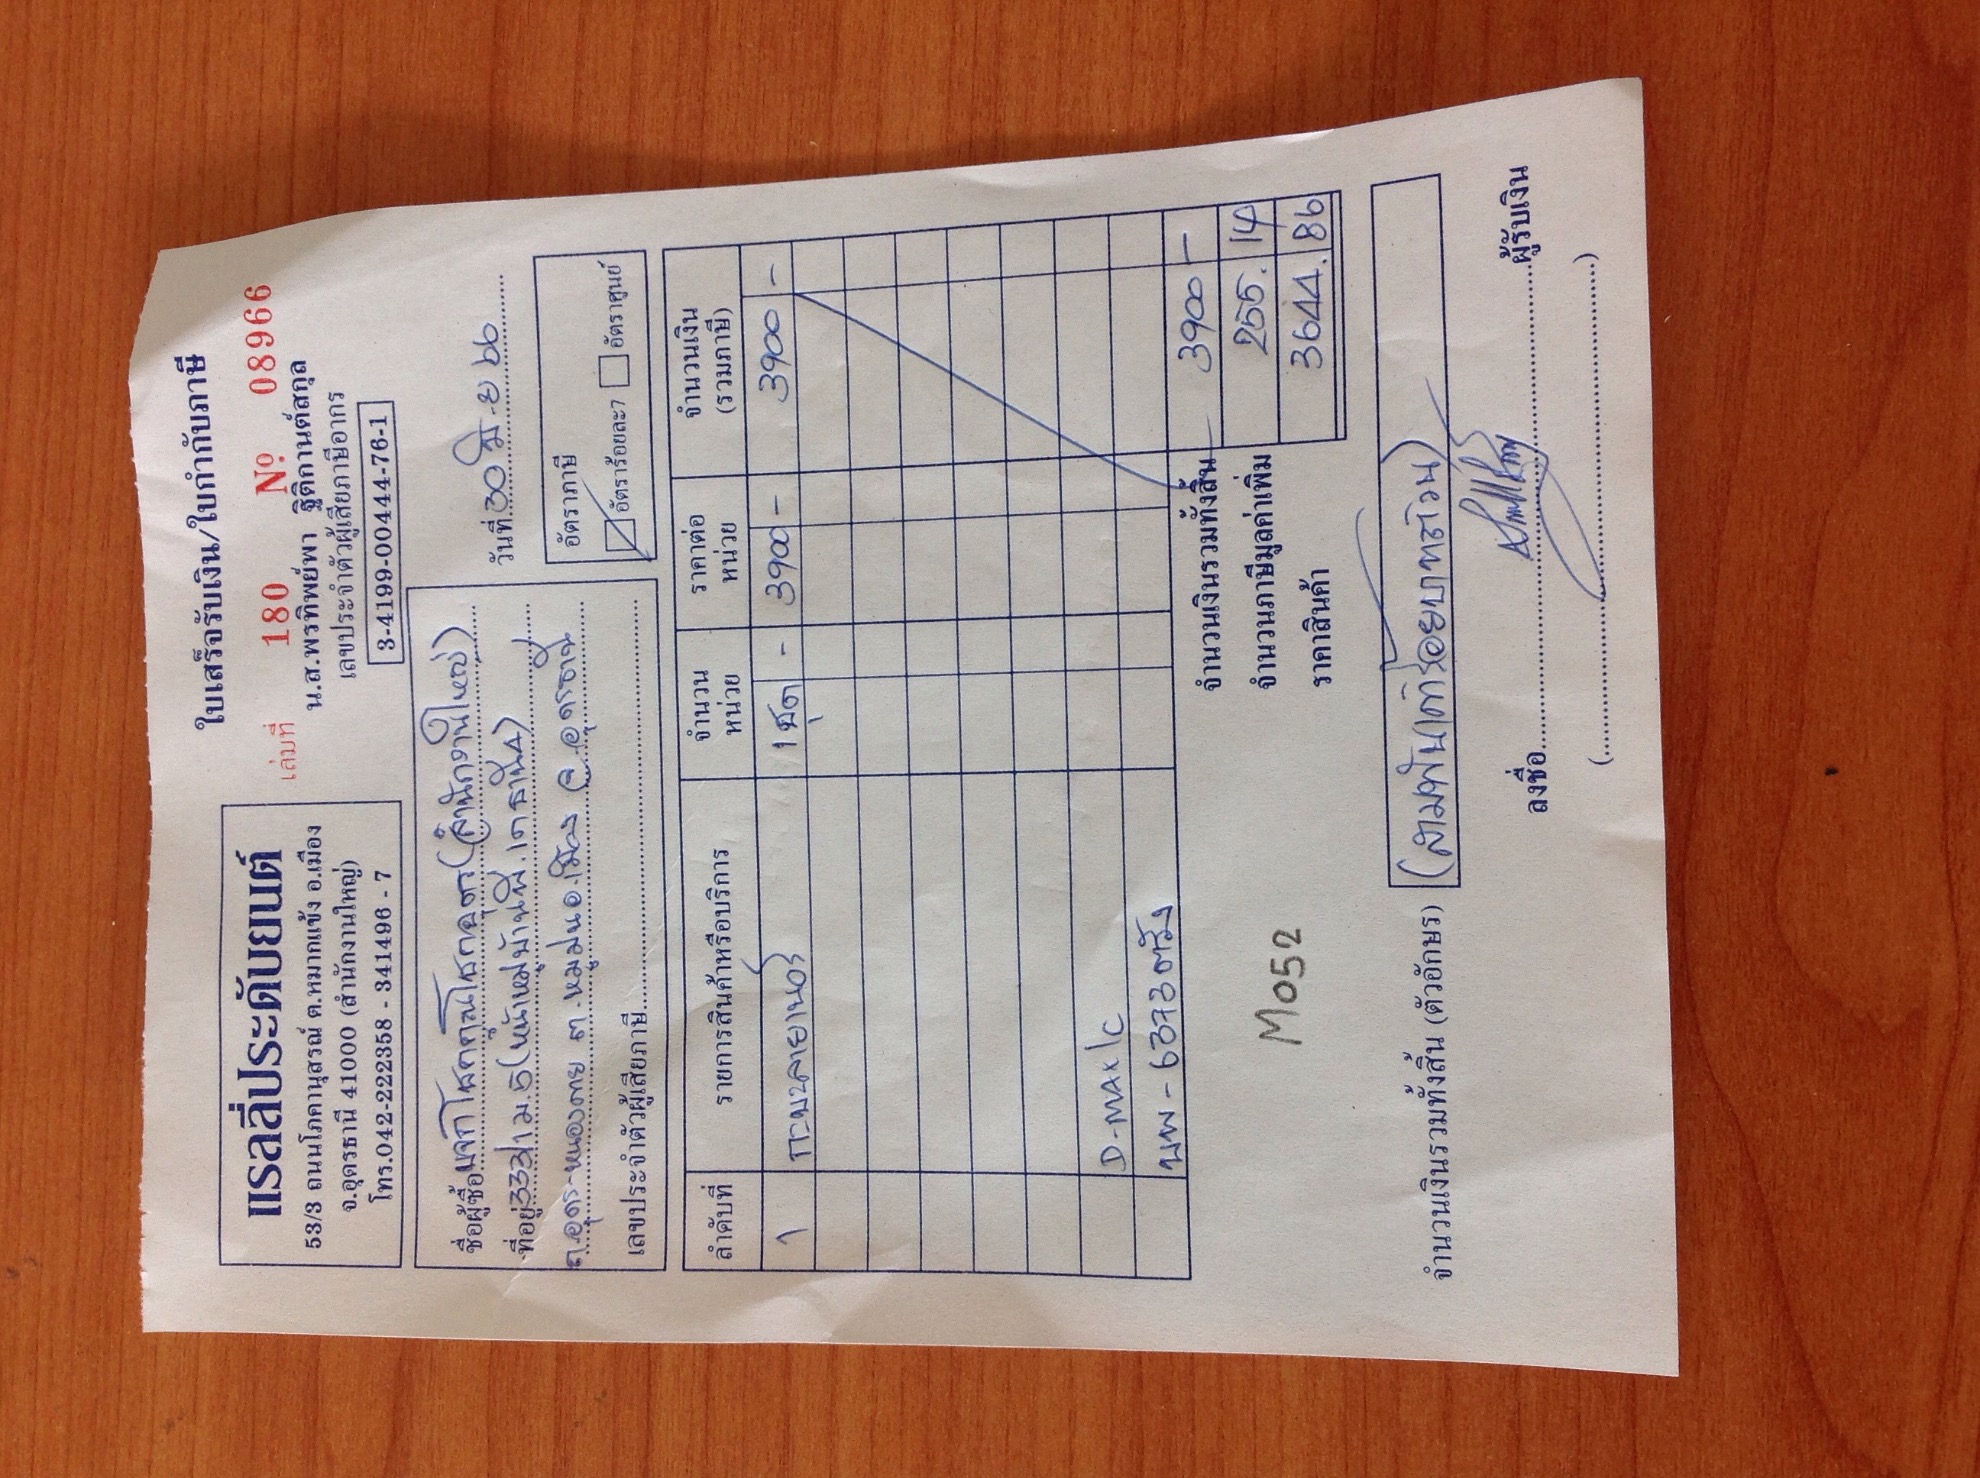 แรลลี่ประดับยนต์
53/3 ถนนโภคานุสรณ์ ต.หมากแข้ง อ.เมือง
จ.อุดรธานี 41000 (สำนักงานใหญ่)
โทร.042-222358 - 341496 - 7
ใบเสร็จรับเงิน/ใบกำกับภาษี
เล่มที่ 180 Nº 08966
น.ส.พรทิพย์พา ฐิติกานต์สกุล
เลขประจำตัวผู้เสียภาษีอากร
3-4199-00444-76-1
วันที่ 30 มิ.ย 66
ชื่อผู้ซื้อ (สำนักงานใหญ่)
ที่อยู่ 333/1 ม.5 (หน้าหมู่บ้านพี.เค ธานี4)
ถ.อุดร-หนองคาย ต.หมูม่น อ.เมือง จ.อุดรธานี
เลขประจำตัวผู้เสียภาษี
อัตราภาษี
อัตราร้อยละ7 อัตราศูนย์
ลำดับที่ รายการสินค้าหรือบริการ จำนวนหน่วย ราคาต่อหน่วย จำนวนเงิน (รวมภาษี)
1 กะบะลายเนอร์ 1 ชุด - 3900 - 3900 -
D-MAX/C
บพ - 6373 ตรัง
จำนวนเงินรวมทั้งสิ้น 3900 -
จำนวนภาษีมูลค่าเพิ่ม 255. 14
ราคาสินค้า 3644. 86
M052
จำนวนเงินรวมทั้งสิ้น (ตัวอักษร) (สามพันเก้าร้อยบาทถ้วน)
ลงชื่อ ผู้รับเงิน
( )